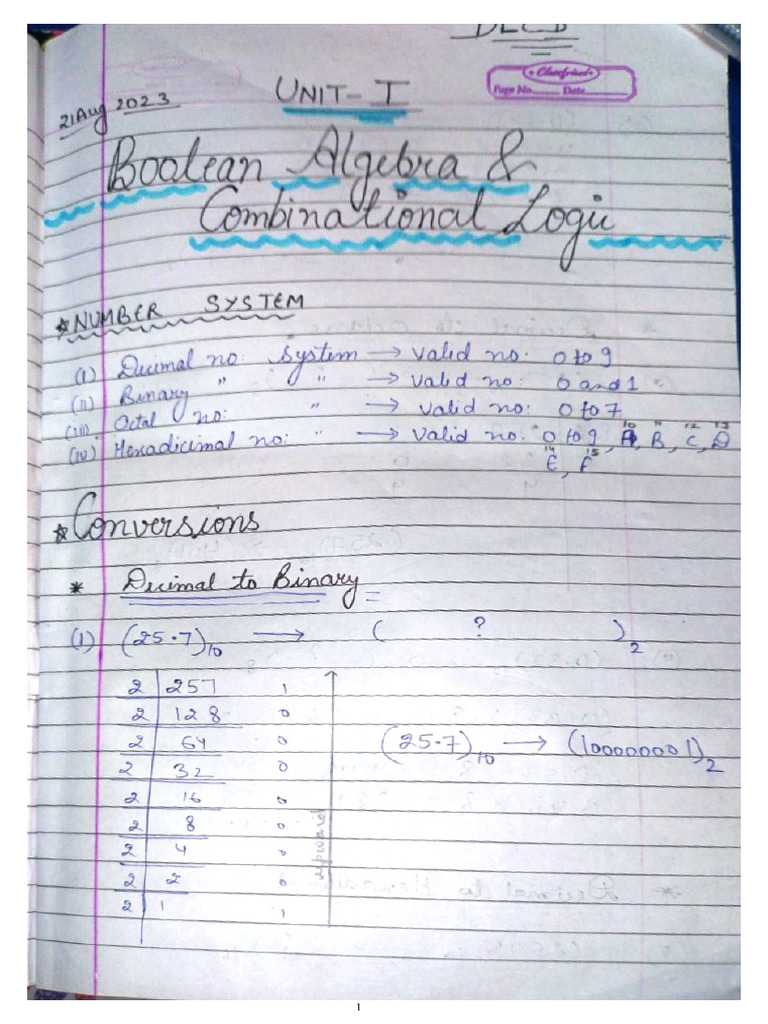 DLCD
Classfriend
Page No. Date
UNIT-I
21 Aug 2023
Boolean Algebra &
Combinational Logic
* NUMBER SYSTEM
(i) Decimal no: System → valid no: 0 to 9
(ii) Binary " " → valid no: 0 and 1
(iii) Octal no: " → valid no: 0 to 7
(iv) Hexadicimal no: " → valid no: 0 to 9, A, B, C, D
10 11 12 13
14 15
E, F
* Conversions
* Decimal to Binary
(1) (25.7)10 → ( ? )2
2 257 1
2 128 0
2 64 0
(25.7)10 → (100000001)2
2 32 0
2 16 0
2 8 0
2 4 0
2 2 0
2 1 1
upward
1